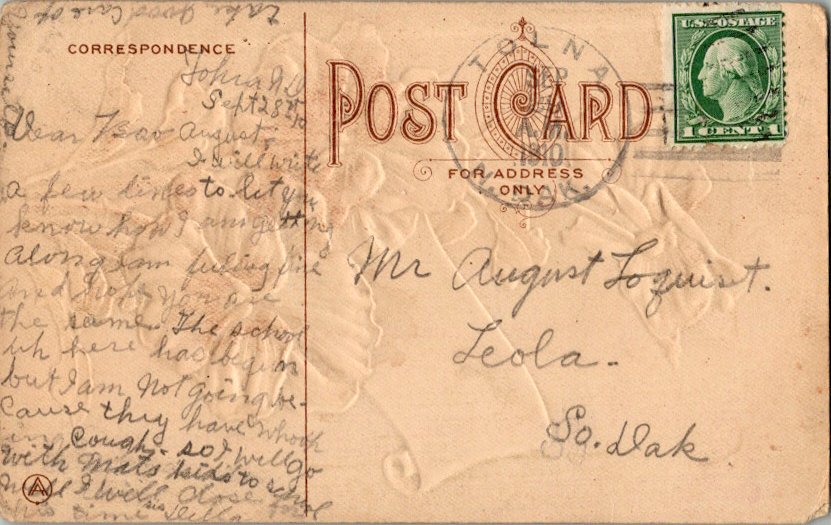 take good care of
yourself.
CORRESPONDENCE
Tolna N D
Sept 28th
Dear Bro August.
I will write
a few lines to let you
know how I am getting
along I am feeling fine
and hope you are
the same. The school
uh here has begin
but I am not going be-
cause they have whoop
ing Cough. so I will go
with Mats kids to school
well I will close for
this time sis
POST CARD
FOR ADDRESS
ONLY
TOLNA
SEP
A.M.
1910
N. DAK.
U.S. POSTAGE
1 CENT 1
Mr August Loquist.
Leola.
So. Dak.
A